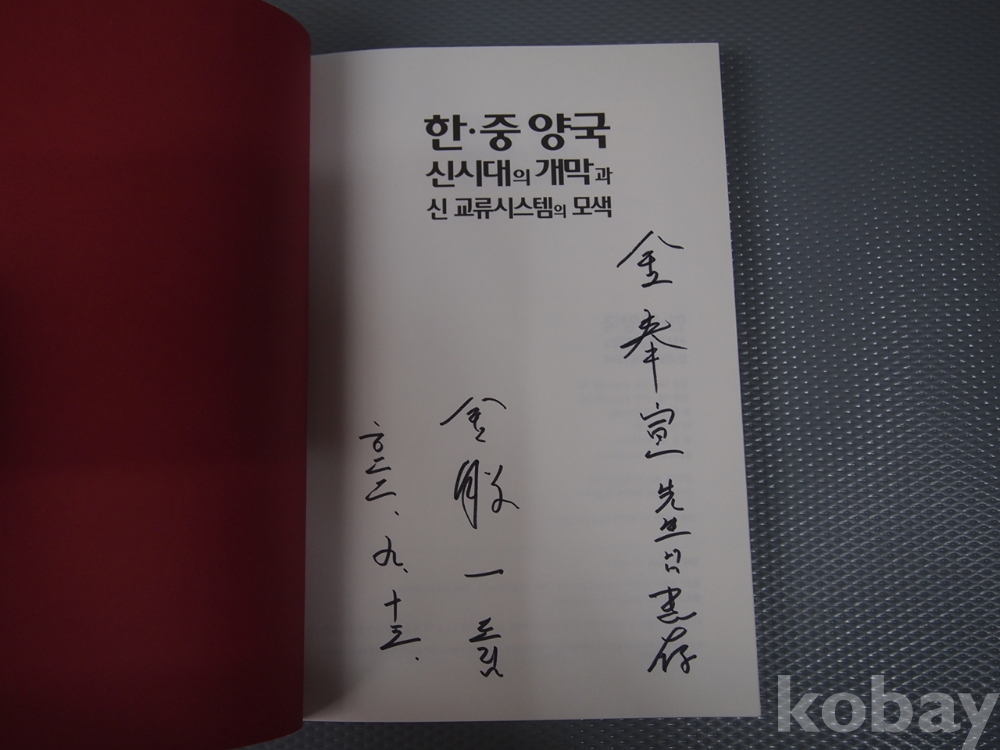 한·중 양국
신시대의 개막과
신 교류시스템의 모색
金奉宣 先生님 惠存
金殷一 드림
九. 十三.
kobay